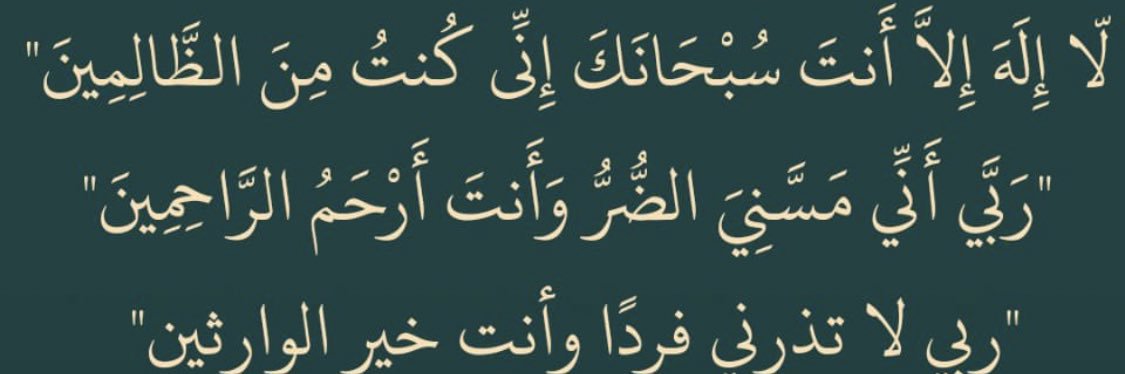 لَّا إِلَهَ إِلاَّ أَنتَ سُبْحَانَكَ إِنِّى كُنتُ مِنَ الظَّالِمِينَ"
"رَبَّي أَنِّي مَسَّنِيَ الضُّرُّ وَأَنتَ أَرْحَمُ الرَّاحِمِينَ"
"ربي لا تذرني فردًا وأنت خير الوارثين"